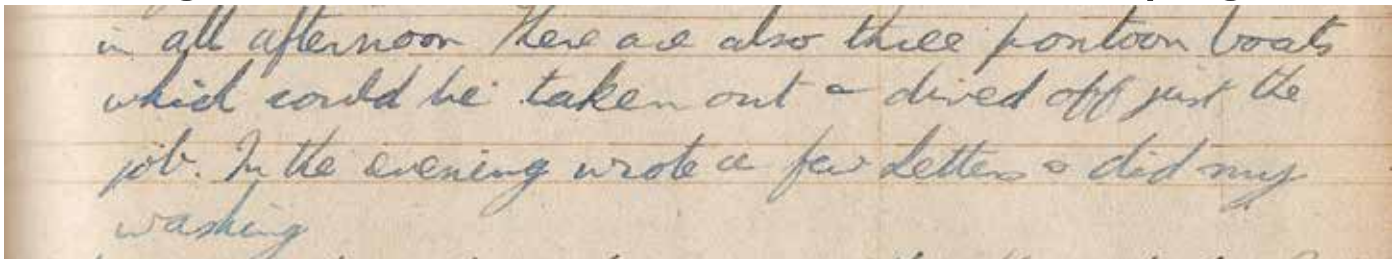 in all afternoon There are also three pontoon boats
which could be taken out & dived off just the
job. In the evening wrote a few letters & did my
washing